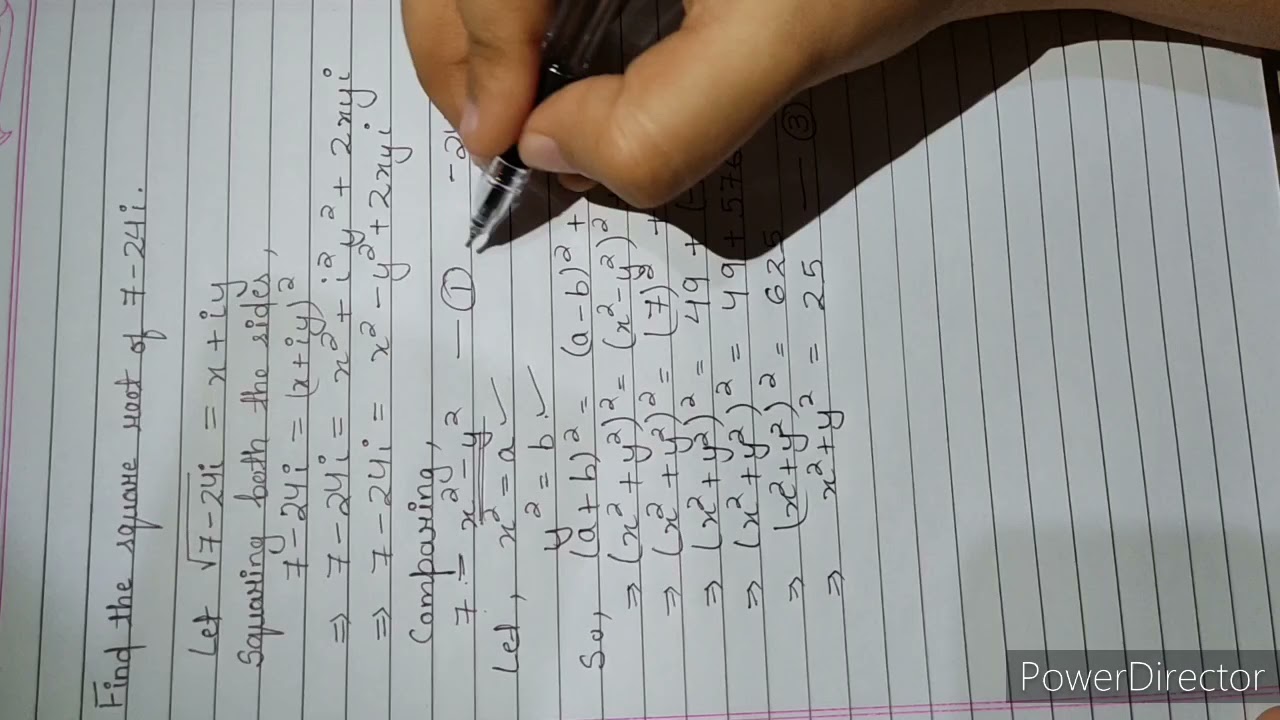 Find the square root of 7-24i.
Let √7-24i = x + iy
Squaring both the sides,
7-24i = (x+iy)²
⇒ 7-24i = x² + i²y² + 2xyi
⇒ 7-24i = x² - y² + 2xyi
Comparing,
7 = x² - y² — ① -24
Let, x² = a ✓
y² = b ✓
So, (a+b)² = (a-b)² +
⇒ (x²+y²)² = (x²-y²)²
⇒ (x²+y²)² = (7)² +
⇒ (x²+y²)² = 49 + (-
⇒ (x²+y²)² = 49 + 576
⇒ (x²+y²)² = 625
⇒ x²+y² = 25 — ③
PowerDirector